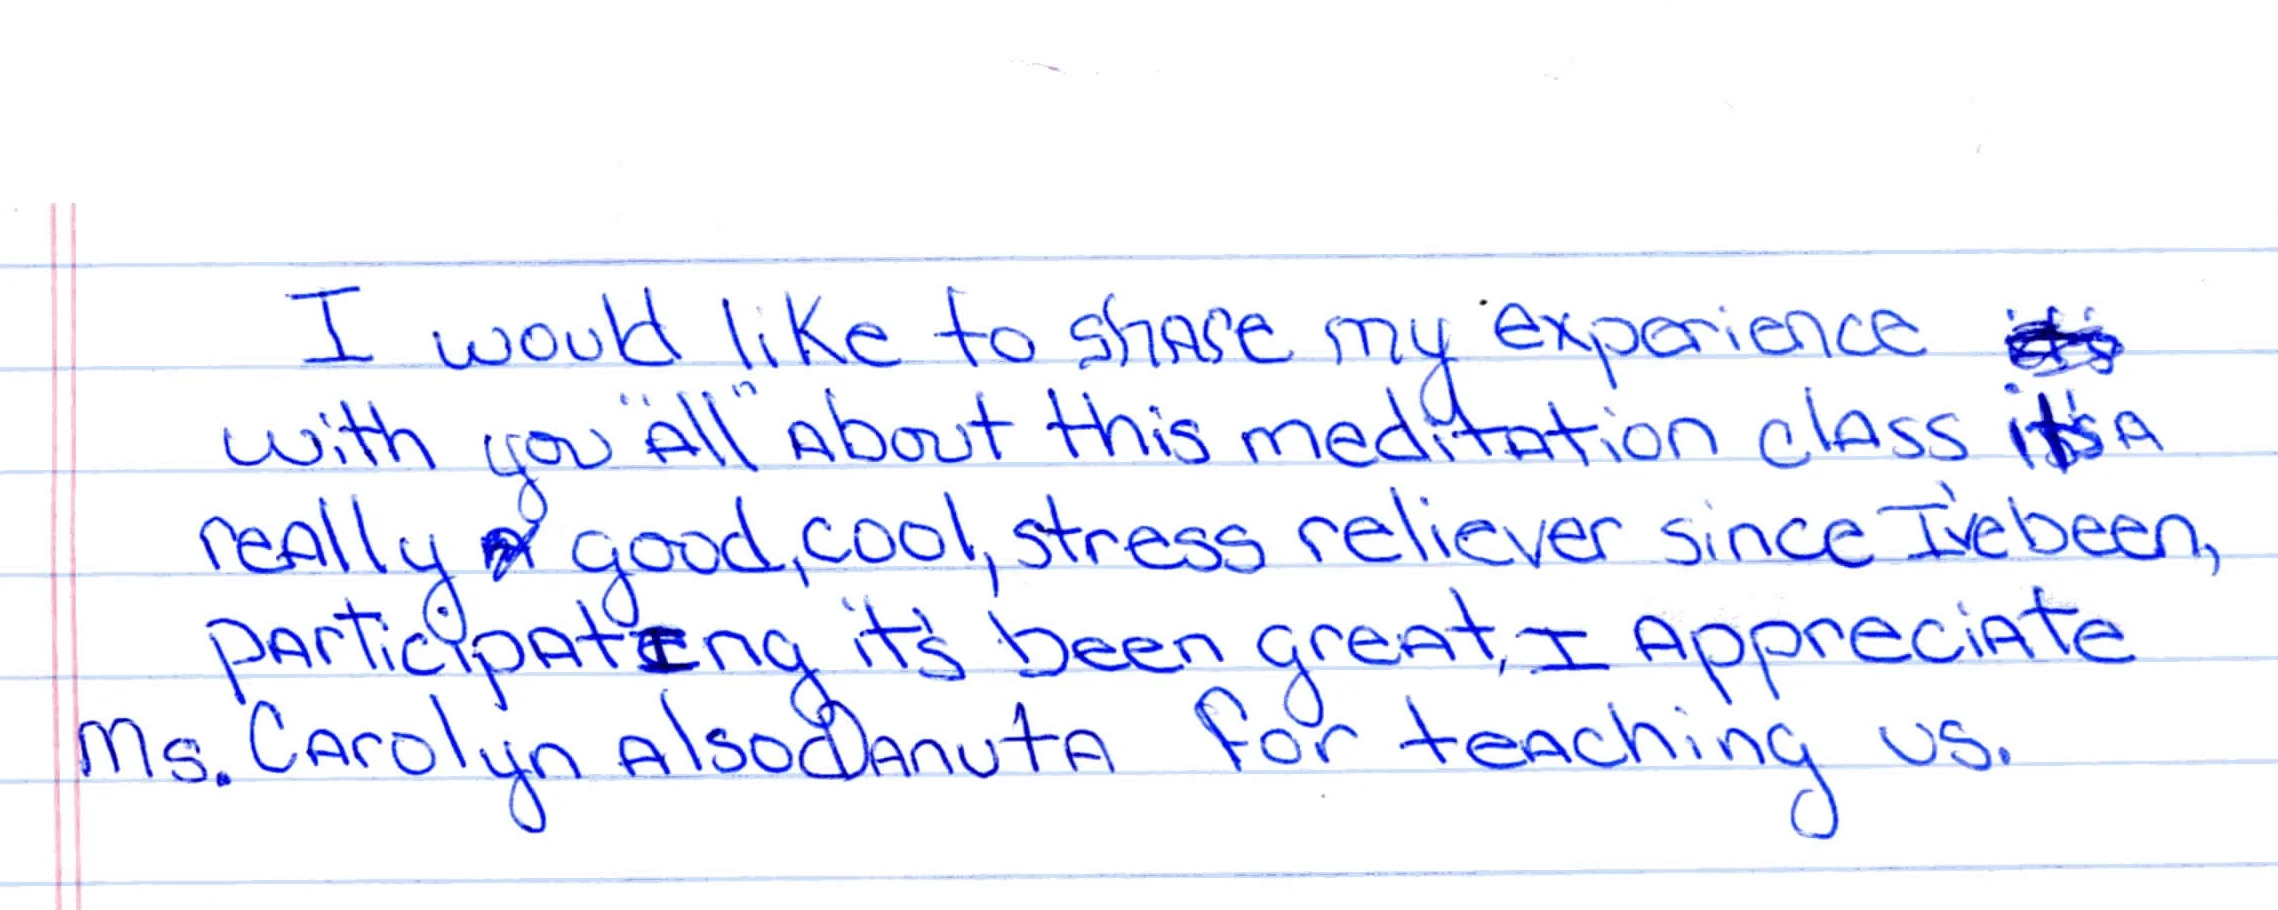 I would like to share my experience
with you "All" About this meditation class it's A
really good, cool, stress reliever since I've been,
participating it's been great, I Appreciate
Ms. Carolyn Also Danuta for teaching us.